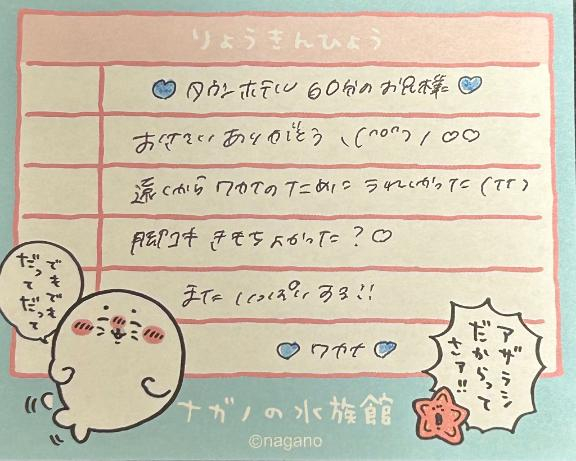 りょうきんひょう
タウンホテル 60分のお兄様に
おはさい ありがとう \(^o^)/ ♡♡
遠くから ワカナのために うれしかった (TT)
脚コキ きもちよかった?♡
また いっぱい する!!
ワカナ
でもでも
だって
だって
アザラシ
だからって
さァ!!
ナガノの水族館
©nagano